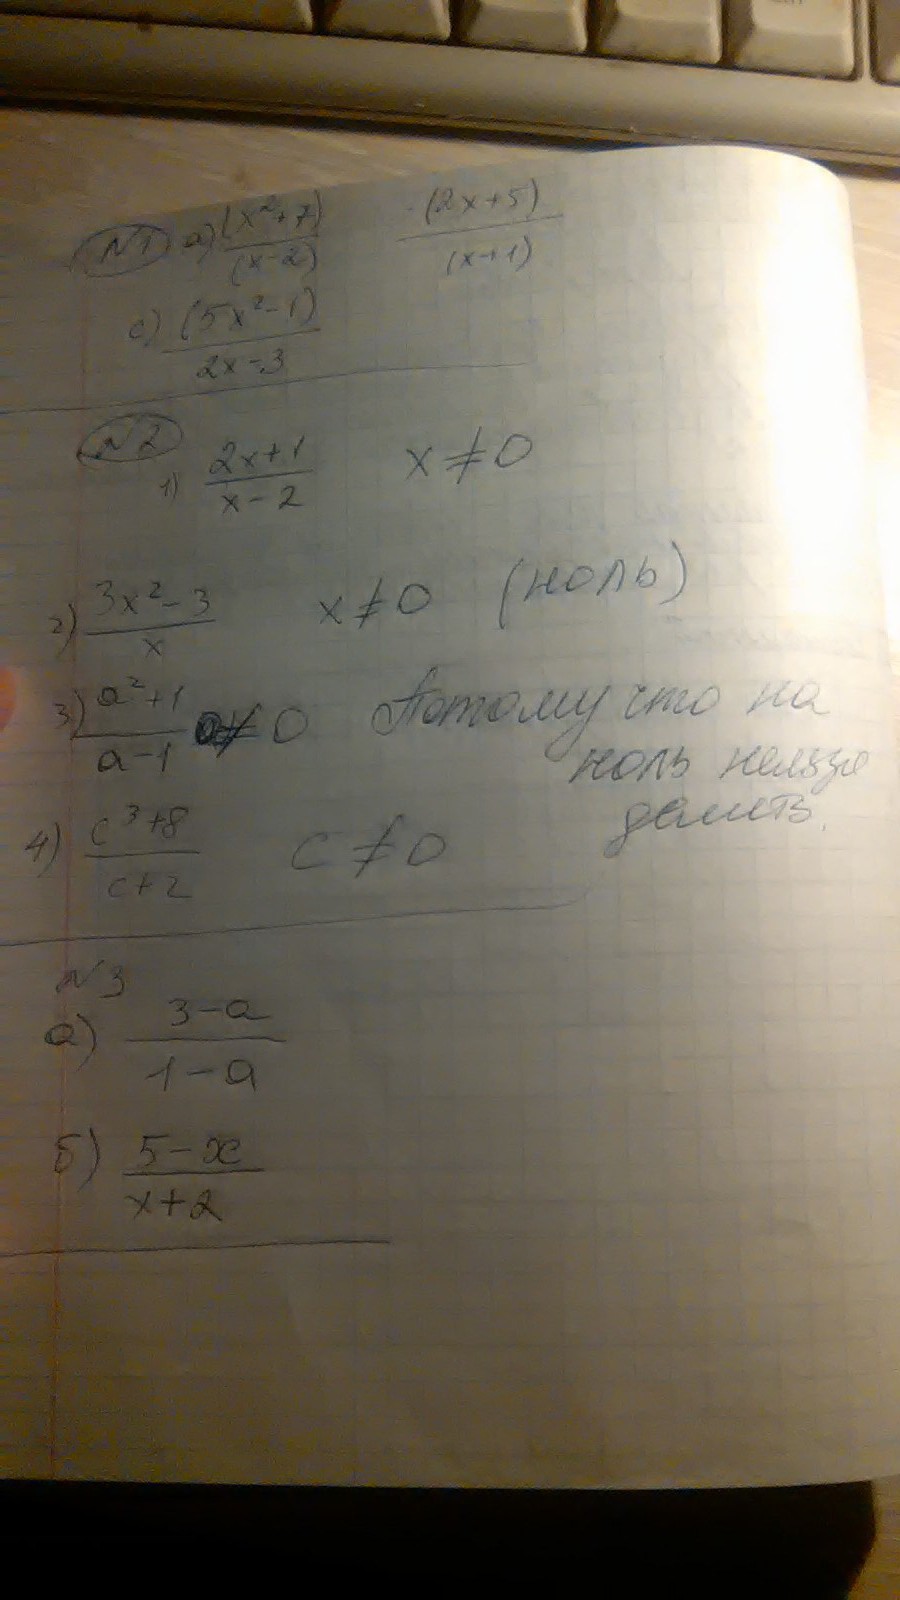 N1 a) (x²+7)/(x-2) (2x+5)/(x+1)
c) (5x²-1)/(2x-3)
N2
1) (2x+1)/(x-2) x≠0
2) (3x²-3)/x x≠0 (ноль)
3) (a²+1)/(a-1) ≠0 Потому что на
ноль нельзя
делить.
4) (c³+8)/(c+2) c≠0
N3
а) (3-a)/(1-a)
б) (5-x)/(x+2)